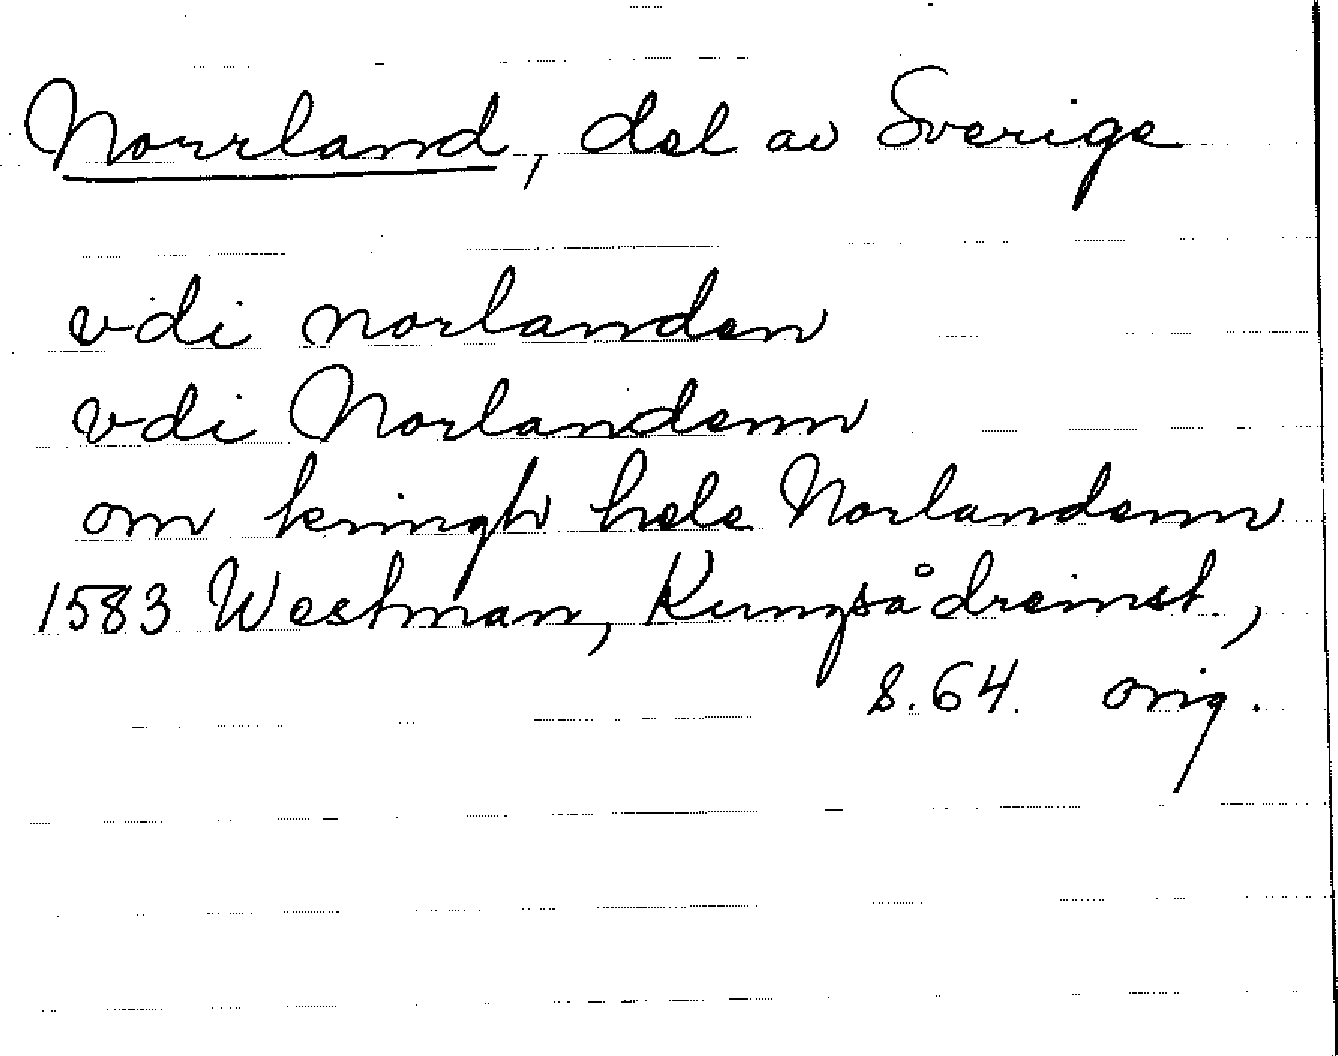 Norrland, del av Sverige
vdi norlanden
vdi Norlandenn
om kringh hele Norlandenn
1583 Westman, Kungsådreinst,
s. 64. orig.